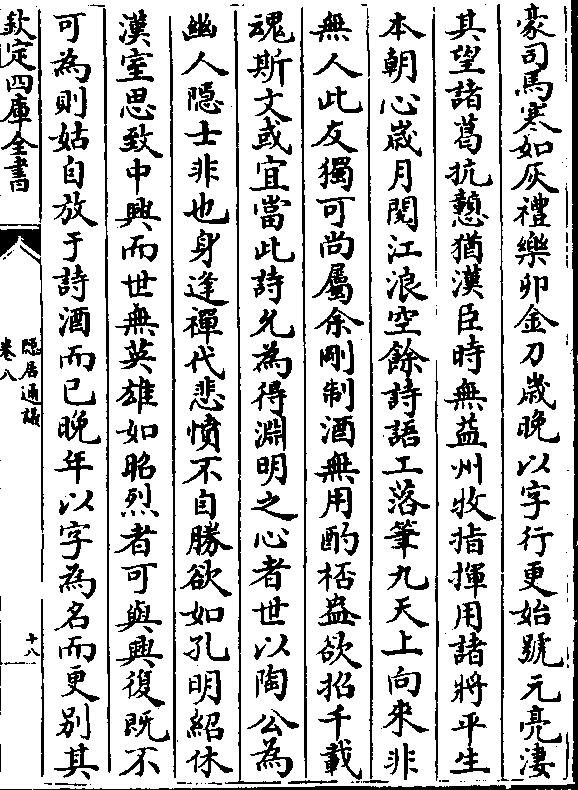 豪司馬寒如灰禮樂卯金刀歲晚以字行更始號元亮淒
其望諸葛抗髒猶漢臣時無益州牧指揮用諸將平生
本朝心歲月閱江浪空餘詩語工落筆九天上向來非
無人此友獨可尚屬余剛制酒無用酌桮盎欲招千載
魂斯文或宜當此詩允為得淵明之心者世以陶公為
幽人隱士非也身逢禪代悲憤不自勝欲如孔明紹休
漢室思致中興而世無英雄如昭烈者可與興復既不
可為則姑自放于詩酒而已晚年以字為名而更别其
欽定四庫全書
隱居通議
卷八
十八